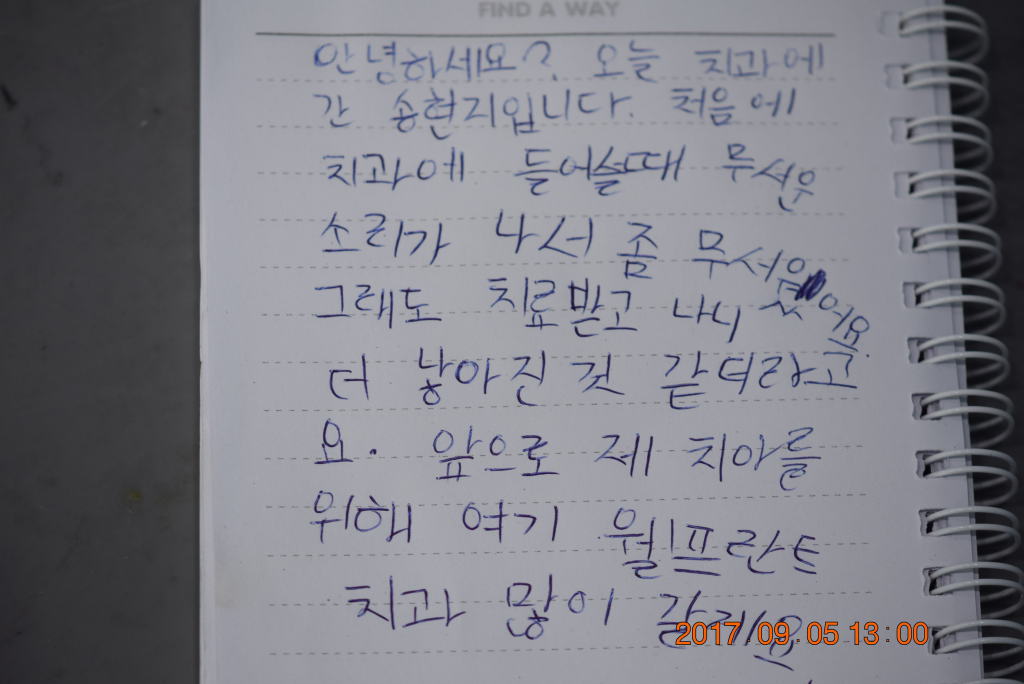 FIND A WAY
안녕하세요? 오늘 치과에
간 송현지입니다. 처음에
치과에 들어설때 무서운
소리가 나서 좀 무서웠어요.
그래도 치료받고 나니
더 낳아진 것 같더라고
요. 앞으로 제 치아를
위해 여기 월프란트
치과 많이 갈레요
2017.09.05 13:00